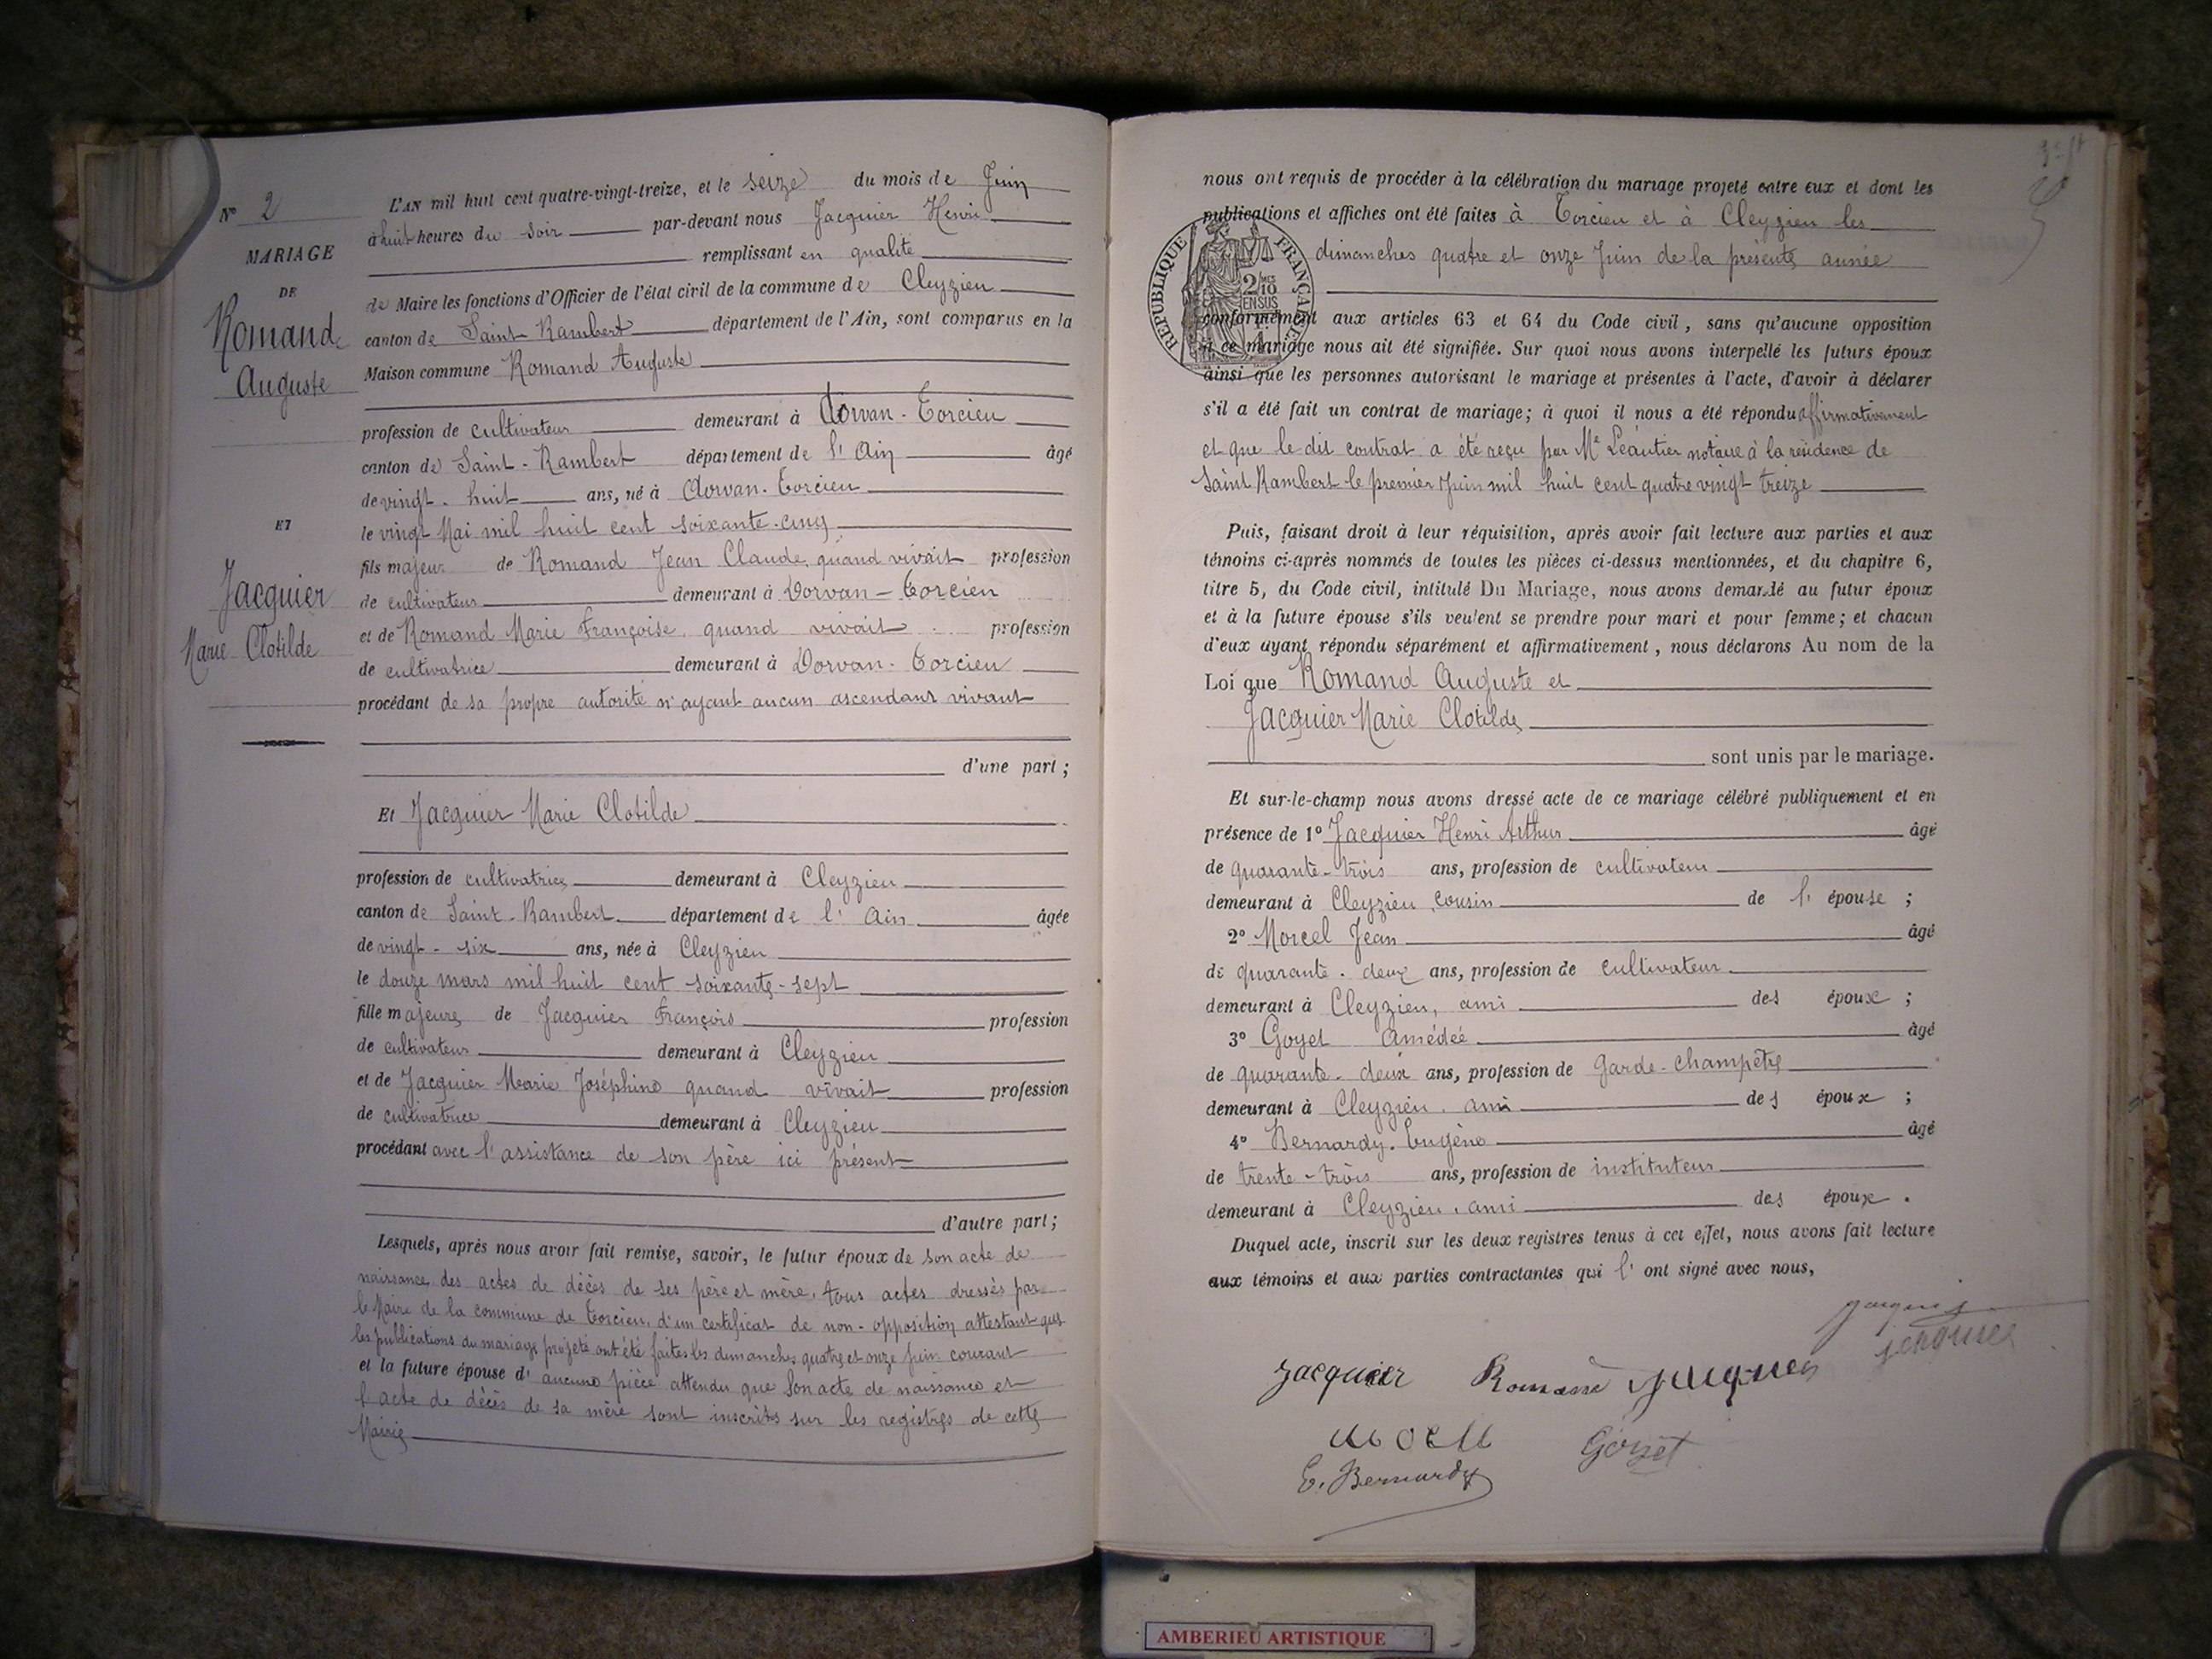 N° 2
MARIAGE
DE
Romand
Auguste
ET
Jacquier
Marie Clotilde
L'AN mil huit cent quatre-vingt-treize, et le seize du mois de Juin
à huit heures du soir par-devant nous Jacquier Henri
remplissant en qualité
de Maire les fonctions d'Officier de l'état civil de la commune de Cleyzieu
canton de Saint-Rambert département de l'Ain, sont comparus en la
Maison commune Romand Auguste
profession de cultivateur demeurant à Dorvan-Torcieu
canton de Saint-Rambert département de l'Ain âgé
de vingt-huit ans, né à Dorvan-Torcieu
le vingt Mai mil huit cent soixante-cinq
fils majeur de Romand Jean Claude, quand vivait profession
de cultivateur demeurant à Dorvan-Torcieu
et de Romand Marie Françoise, quand vivait profession
de cultivatrice demeurant à Dorvan-Torcieu
procédant de sa propre autorité n'ayant aucun ascendant vivant
d'une part;
Et Jacquier Marie Clotilde
profession de cultivatrice demeurant à Cleyzieu
canton de Saint-Rambert département de l'Ain âgée
de vingt-six ans, née à Cleyzieu
le douze mars mil huit cent soixante-sept
fille majeure de Jacquier François profession
de cultivateur demeurant à Cleyzieu
et de Jacquier Marie Joséphine quand vivait profession
de cultivatrice demeurant à Cleyzieu
procédant avec l'assistance de son père ici présent
d'autre part;
Lesquels, après nous avoir fait remise, savoir, le futur époux de son acte de
naissance, des actes de décès de ses père et mère, tous actes dressés par
le Maire de la commune de Torcieu, d'un certificat de non-opposition attestant que
les publications du mariage projeté ont été faites les dimanches quatre et onze juin courant
et la future épouse d'aucune pièce attendu que son acte de naissance et
l'acte de décès de sa mère sont inscrits sur les registres de cette
Mairie
nous ont requis de procéder à la célébration du mariage projeté entre eux et dont les
publications et affiches ont été faites à Torcieu et à Cleyzieu les
dimanches quatre et onze Juin de la présente année
RÉPUBLIQUE FRANÇAISE
2/10 EN SUS
conformément aux articles 63 et 64 du Code civil, sans qu'aucune opposition
à ce mariage nous ait été signifiée. Sur quoi nous avons interpellé les futurs époux
ainsi que les personnes autorisant le mariage et présentes à l'acte, d'avoir à déclarer
s'il a été fait un contrat de mariage; à quoi il nous a été répondu affirmativement
et que le dit contrat a été reçu par Me Léautier notaire à la résidence de
Saint Rambert le premier Juin mil huit cent quatre vingt treize
Puis, faisant droit à leur réquisition, après avoir fait lecture aux parties et aux
témoins ci-après nommés de toutes les pièces ci-dessus mentionnées, et du chapitre 6,
titre 5, du Code civil, intitulé Du Mariage, nous avons demandé au futur époux
et à la future épouse s'ils veulent se prendre pour mari et pour femme; et chacun
d'eux ayant répondu séparément et affirmativement, nous déclarons Au nom de la
Loi que Romand Auguste et
Jacquier Marie Clotilde
sont unis par le mariage.
Et sur-le-champ nous avons dressé acte de ce mariage célébré publiquement et en
présence de 1° Jacquier Henri Arthur âgé
de quarante-trois ans, profession de cultivateur
demeurant à Cleyzieu, cousin de l'épouse;
2° Morcel Jean âgé
de quarante-deux ans, profession de cultivateur
demeurant à Cleyzieu, ami des époux;
3° Goyet Amédée âgé
de quarante-deux ans, profession de Garde-champêtre
demeurant à Cleyzieu, ami des époux;
4° Bernardy Eugène âgé
de trente-trois ans, profession de instituteur
demeurant à Cleyzieu, ami des époux.
Duquel acte, inscrit sur les deux registres tenus à cet effet, nous avons fait lecture
aux témoins et aux parties contractantes qui l'ont signé avec nous,
Jacquier
Jacquier
Jacquier Romand Jacquier
Goyet
E. Bernardy
AMBERIEU ARTISTIQUE